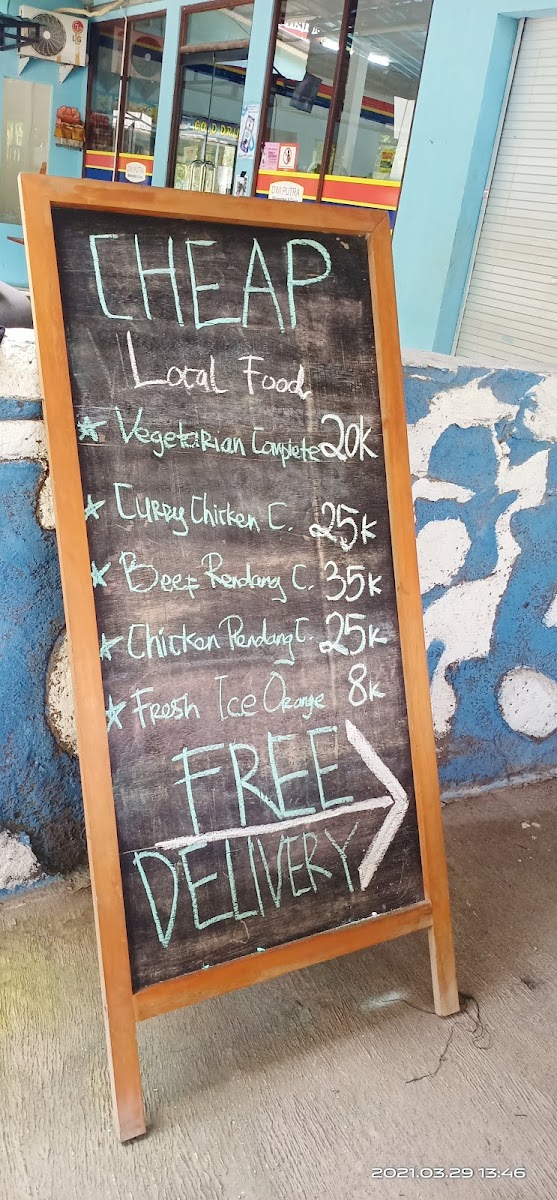 LG
COLD DRIN
DWI PUTRA
DWI PUTRA
CHEAP
Local Food
Vegetarian Complete 20K
Curry Chicken C. 25K
Beef Rendang C. 35K
Chicken Rendang C. 25K
Fresh Ice Orange 8K
FREE
DELIVERY
2021.03.29 13:46